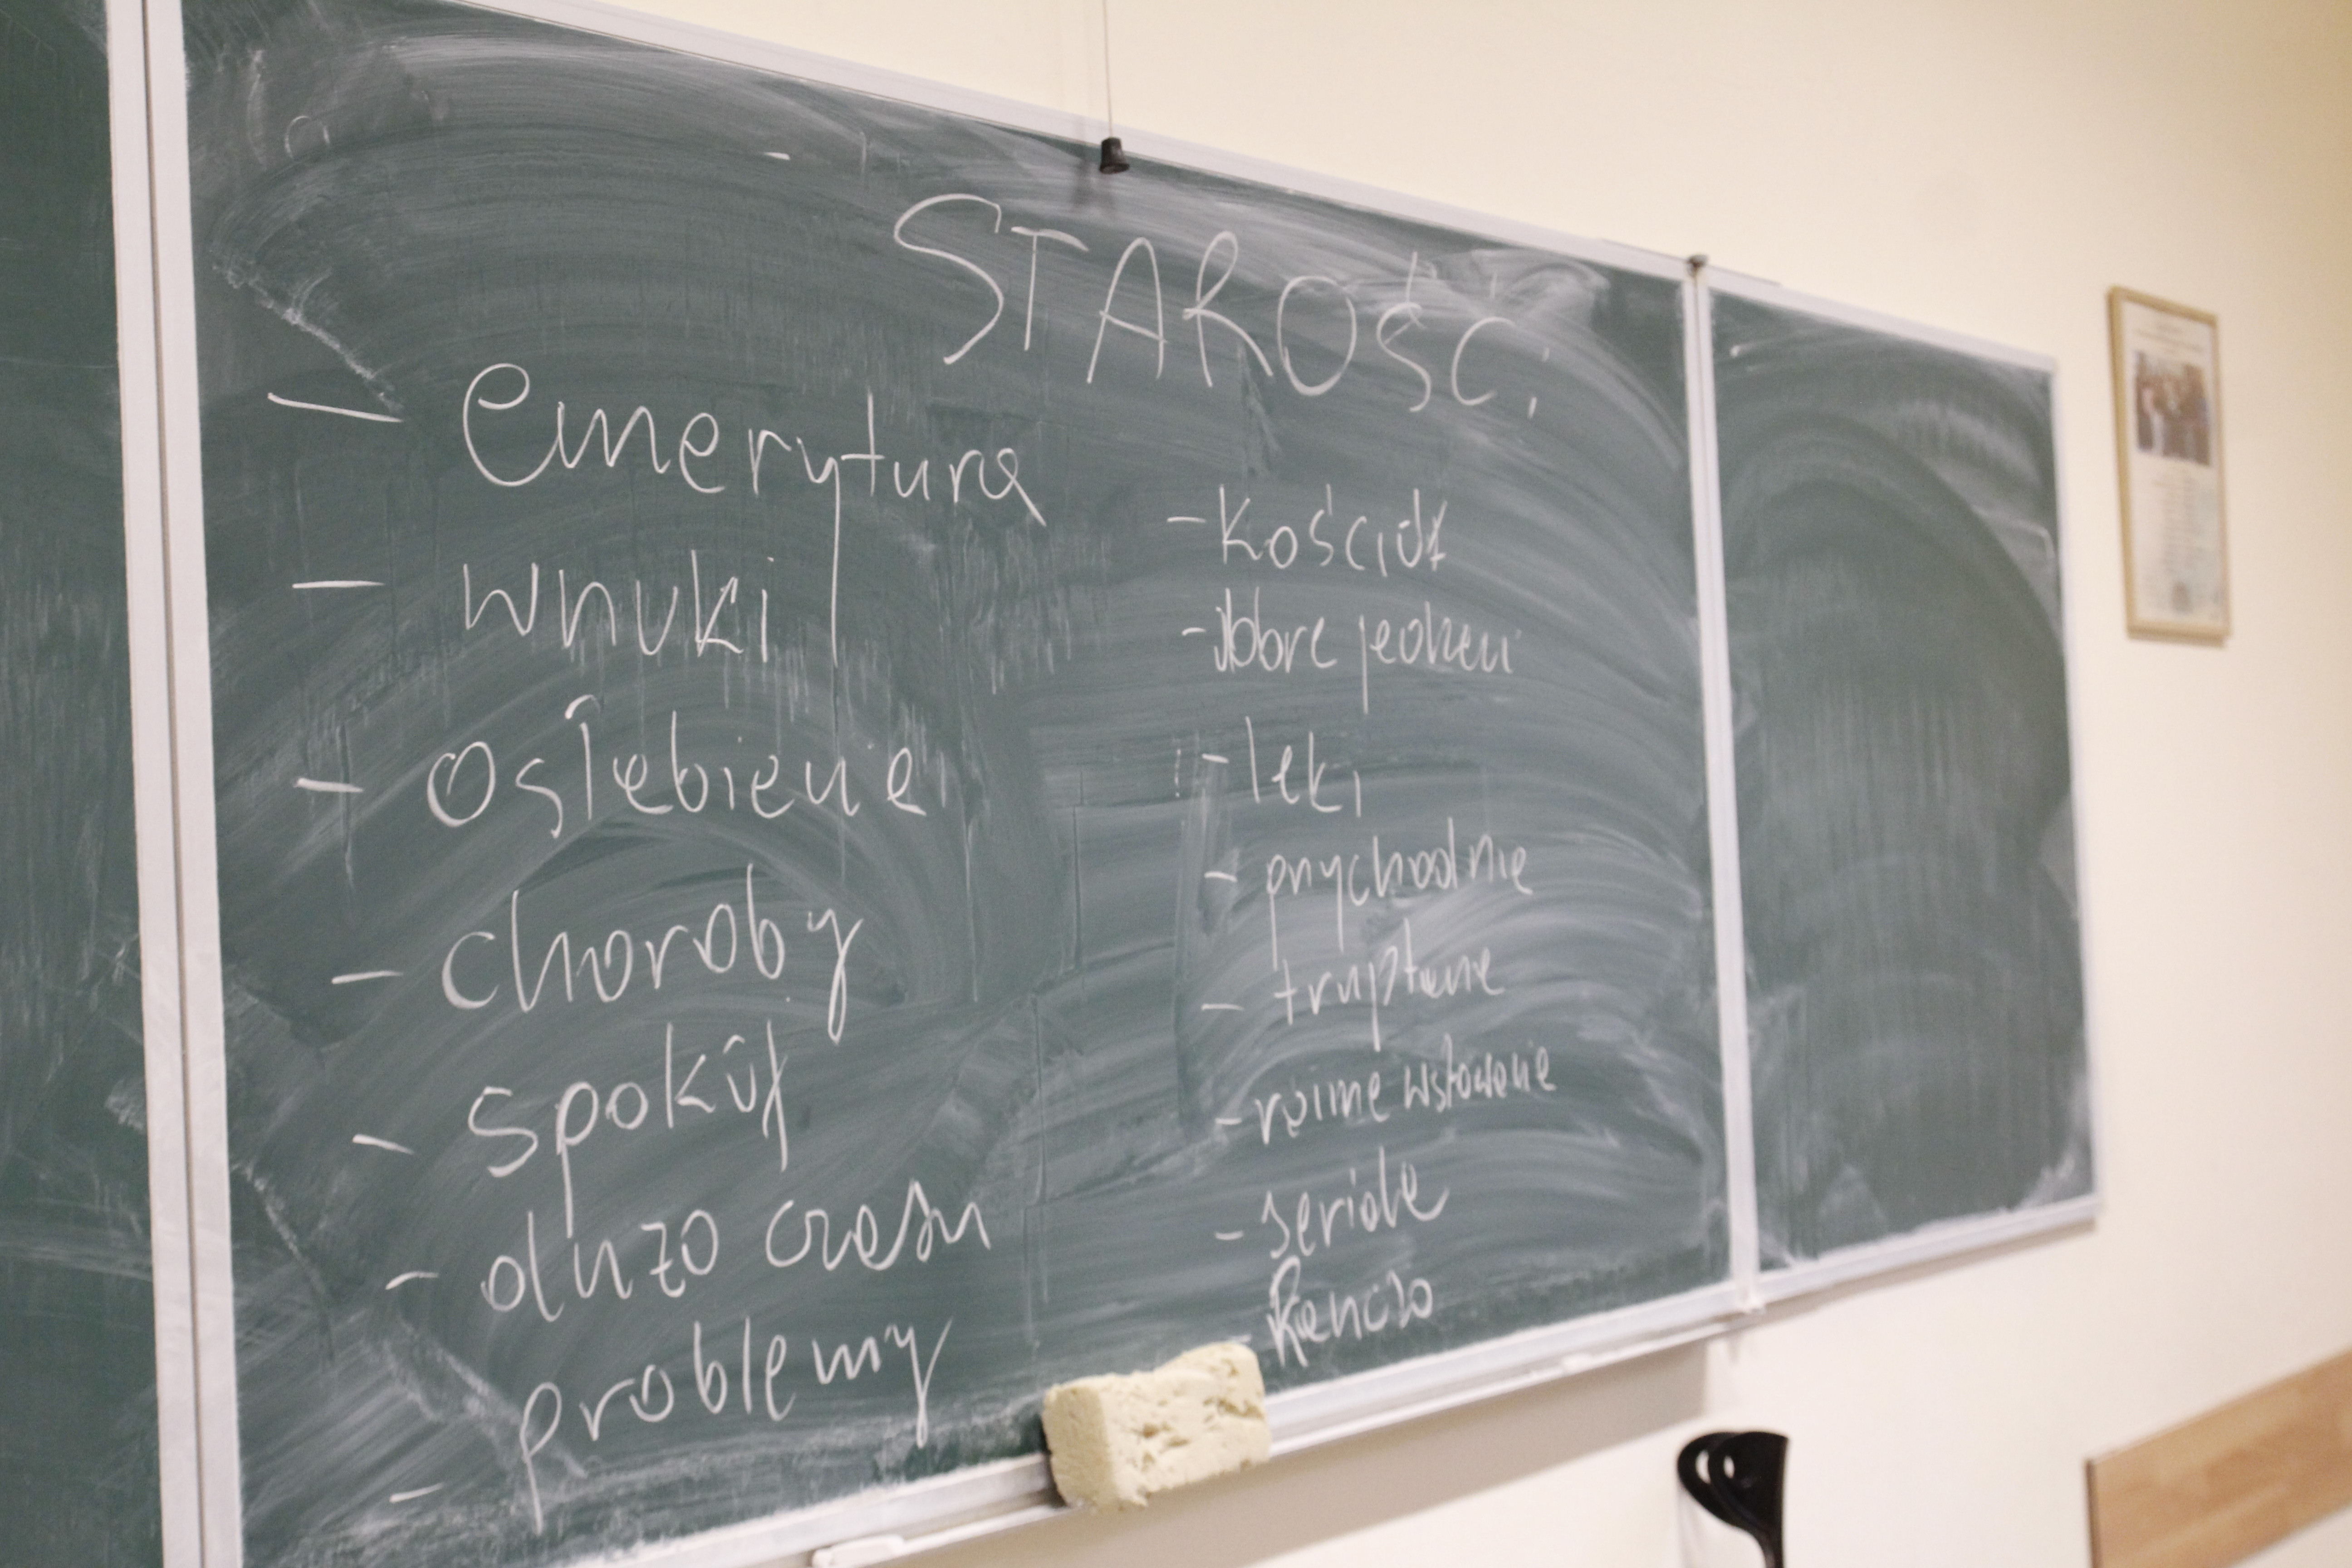 STAROŚĆ:
- emerytura
- wnuki
- osłabienie
- choroby
- spokój
- dużo czasu
- problemy
- kościół
- dobre jedzenie
- leki
- przychodnie
- truptanie
- ranne wstawanie
- seriale
- Ranczo